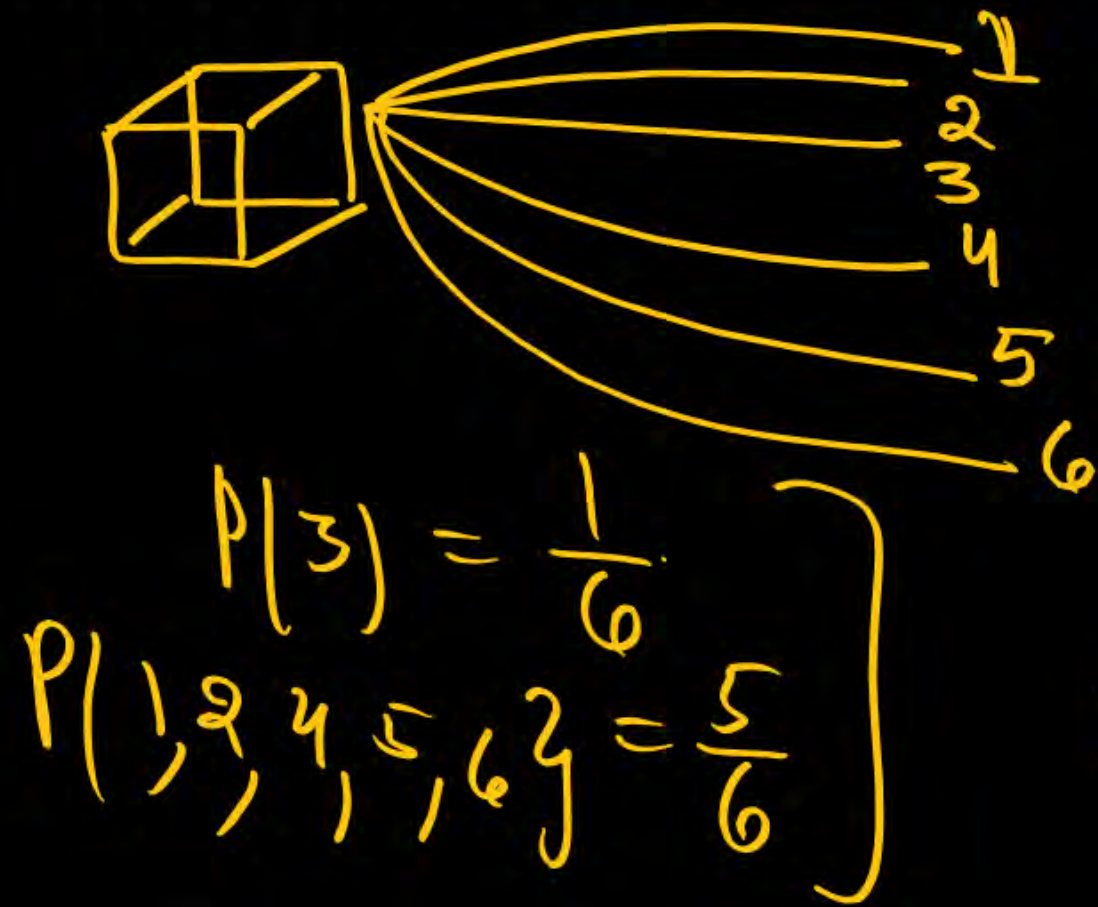 1
2
3
4
5
6
P(3) = 1/6
P(1,2,4,5,6} = 5/6